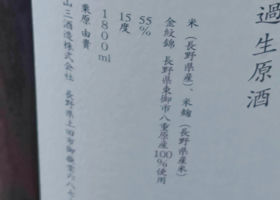 過生原酒
米(長野県産)、米麹(長野県産米)
金紋錦 長野県東御市八重原産100%使用
55%
15度
1800ml
栗原由貴
山三酒造株式会社 長野県上田市御嶽堂内八